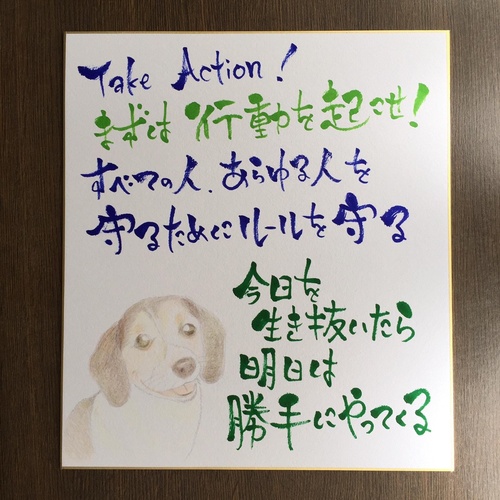 Take Action!
まずは行動を起こせ!
すべての人、あらゆる人を
守るためにルールを守る
今日を
生き抜いたら
明日は
勝手にやってくる